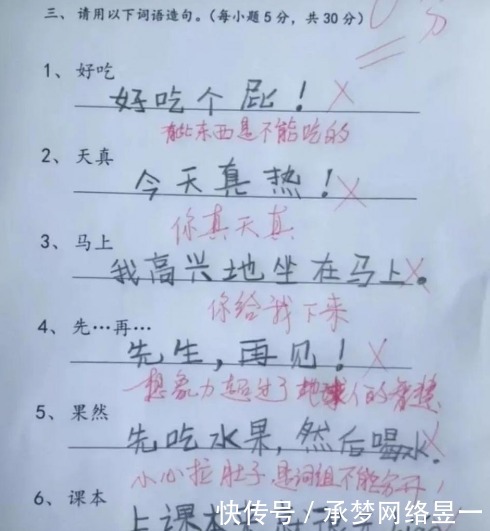 三、请用以下词语造句。(每小题5分,共30分)
0分
1、好吃
好吃个屁!
有些东西是不能吃的
2、天真
今天真热!
你真天真
3、马上
我高兴地坐在马上。
你给我下来
4、先…再…
先生,再见!
想象力超过了地球人的智慧
5、果然
先吃水果,然后喝水.
小心拉肚子是词组不能分开!
6、课本
上课本
快传号/承梦网络昱一